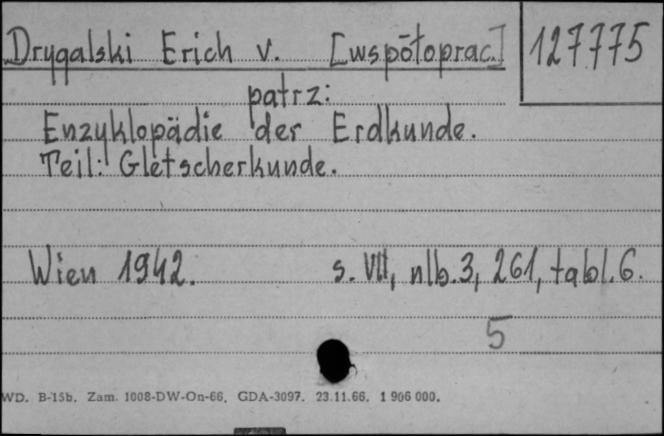 Drygalski Erich v. [współoprac.] 127775
patrz:
Enzyklopädie der Erdkunde.
Teil: Gletscherkunde.
Wien 1942. s. VII, nlb. 3, 261, tabl. 6.
5
WD. B-15b. Zam. 1008-DW-On-66. GDA-3097. 23.11.66. 1 906 000.